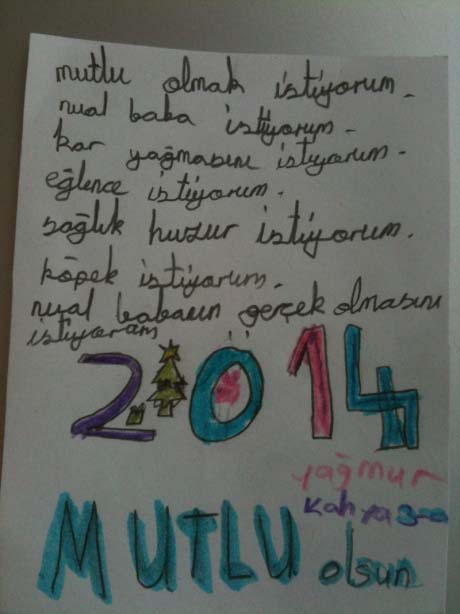 mutlu olmak istiyorum.
nual baba istiyorum.
kar yağmasını istiyorum.
eğlence istiyorum.
sağlık huzur istiyorum.
köpek istiyorum.
nual babanın gerçek olmasını
istiyoram
2014
yağmur
MUTLU olsun